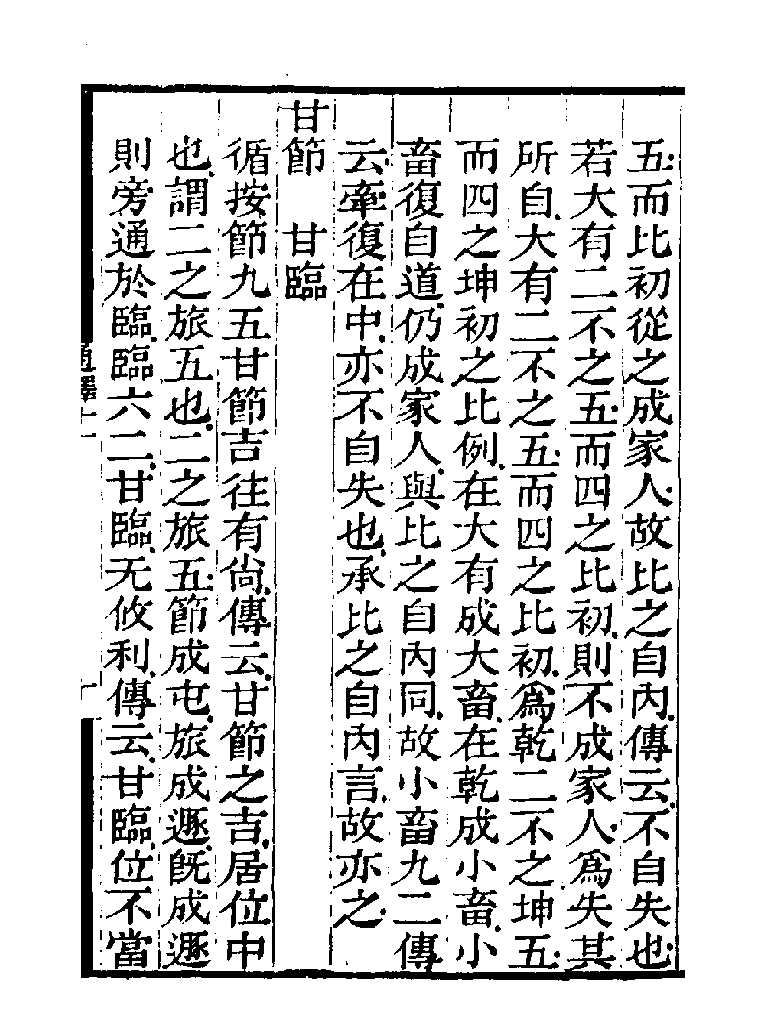 五而比初從之成家人故比之自內傳云不自失也
若大有二不之五而四之比初則不成家人爲失其
所自大有二不之五而四之比初爲乾二不之坤五
而四之坤初之比例在大有成大畜在乾成小畜小
畜復自道仍成家人與比之自內同故小畜九二傳
云牽復在中亦不自失也承比之自內言故亦之
甘節　甘臨
循按節九五甘節吉往有尙傳云甘節之吉居位中
也謂二之旅五也二之旅五節成屯旅成遯旣成遯
則旁通於臨臨六二甘臨无攸利傳云甘臨位不當
通釋十一
十